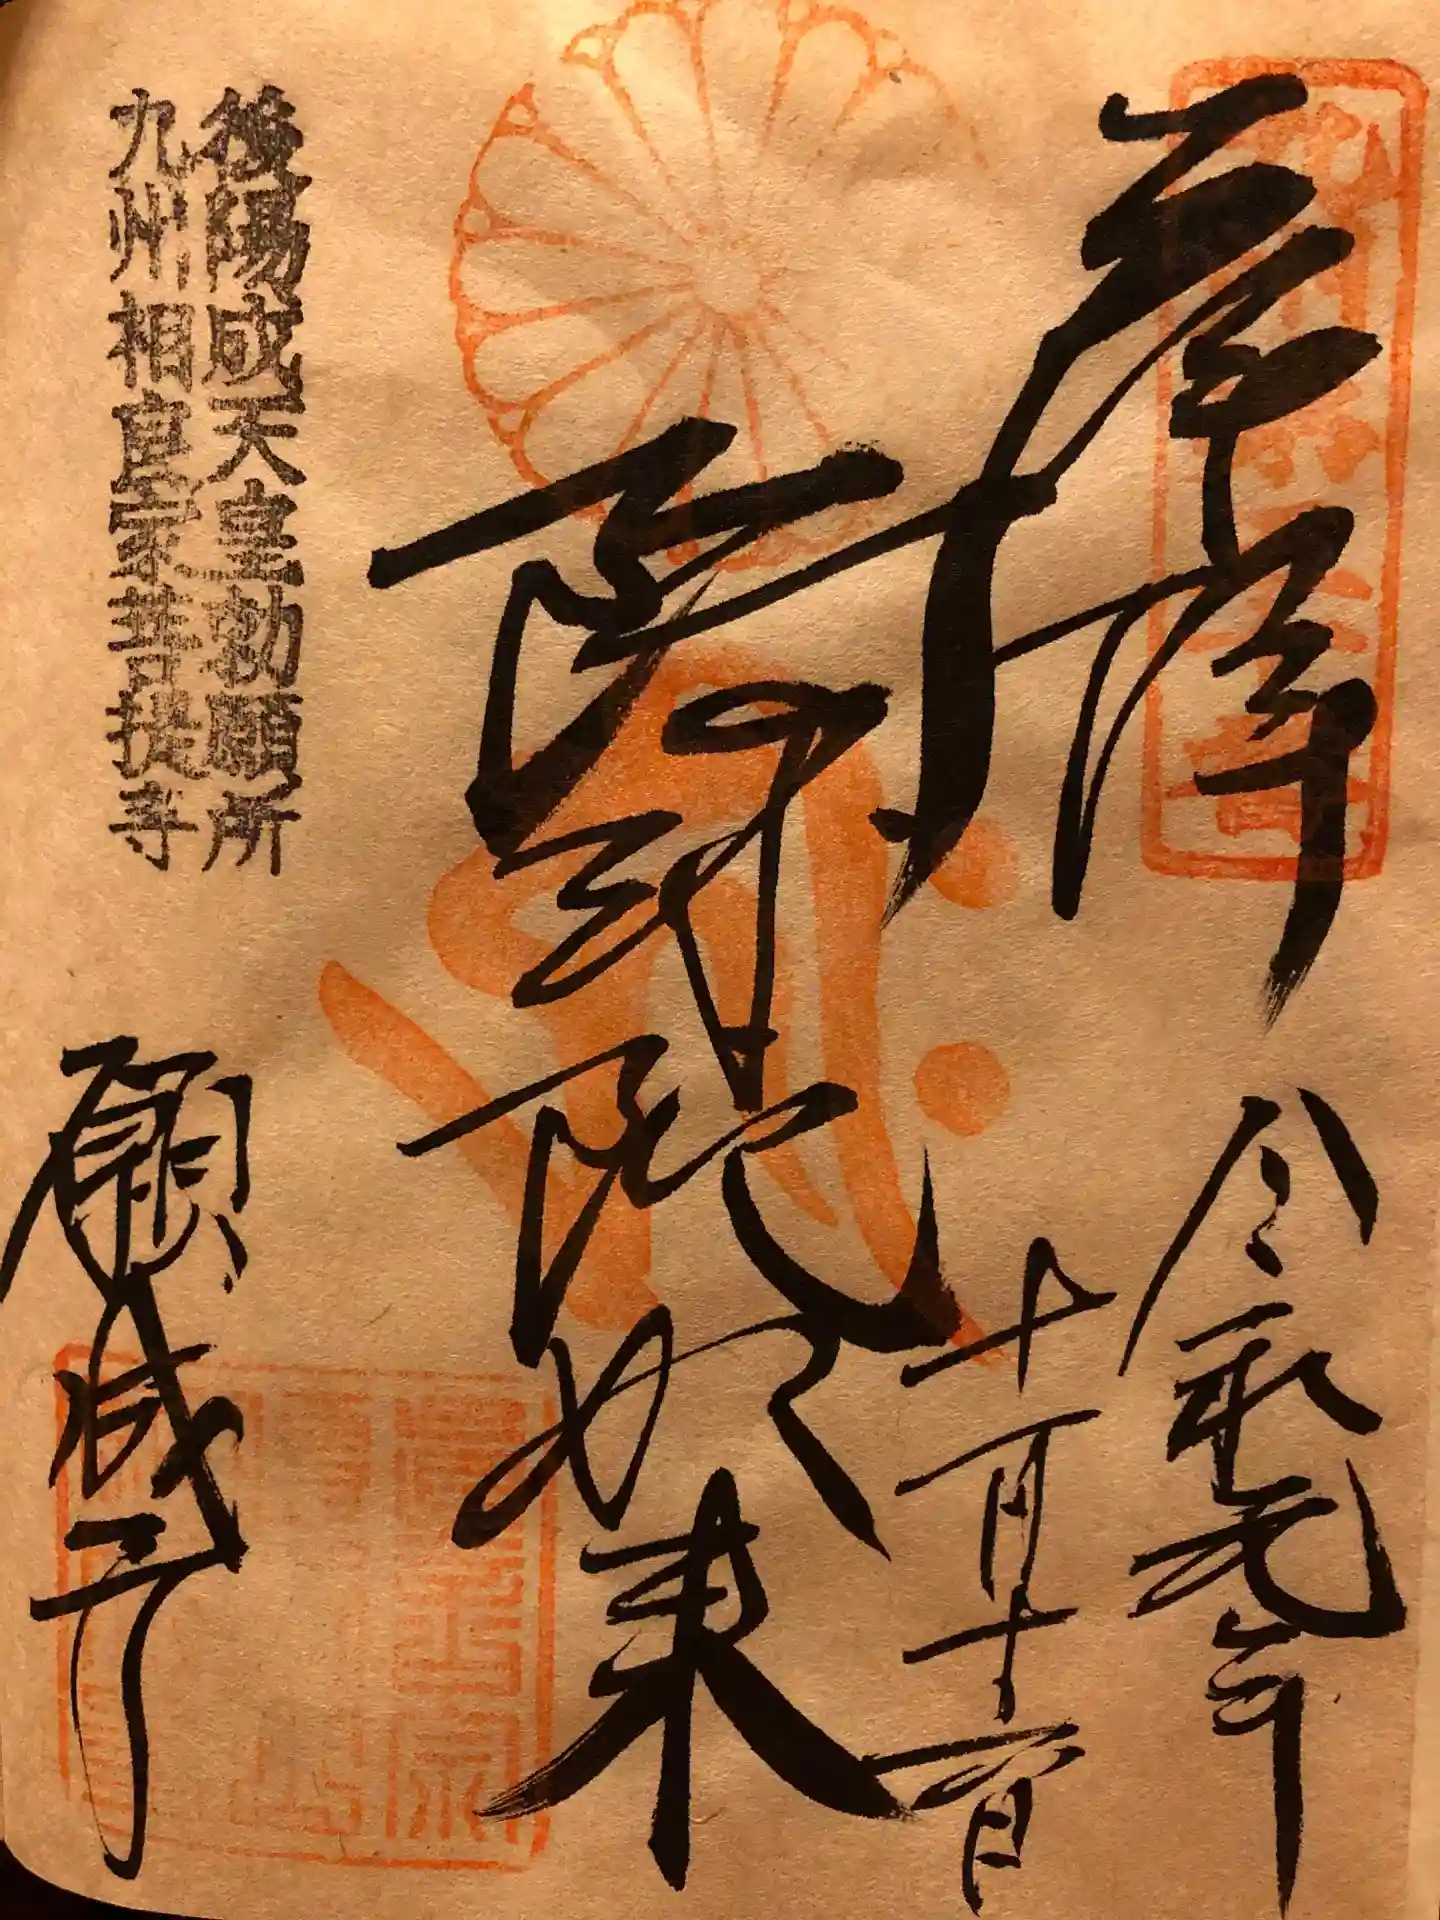 奉拝
令和元年
十一月十六日
阿弥陀如来
後陽成天皇勅願所
九州相良家菩提寺
願成寺